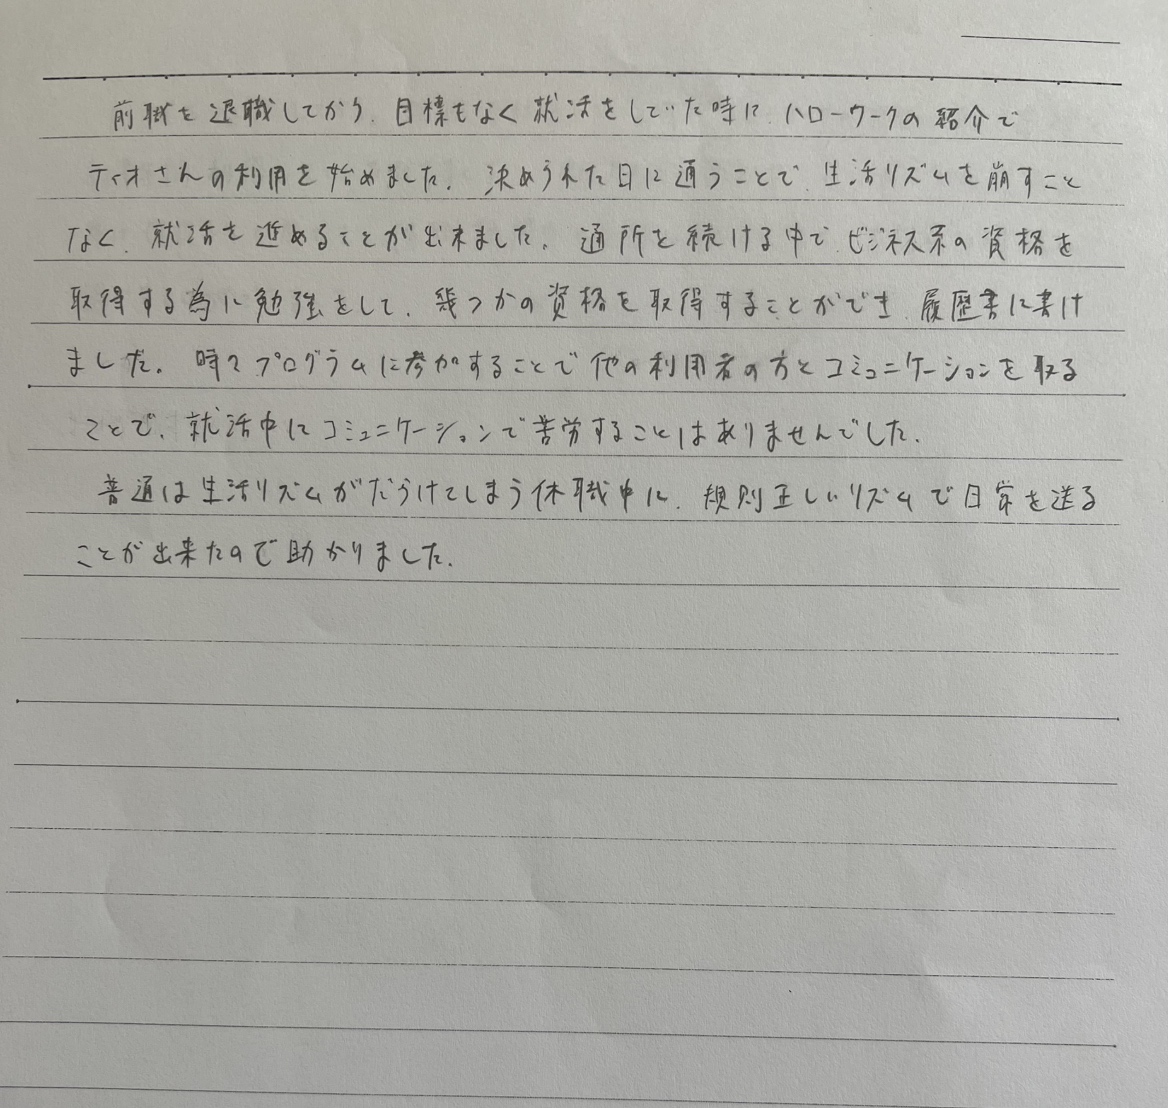 前職を退職してから、目標もなく就活をしていた時に、ハローワークの紹介で
ティオさんの利用を始めました。決められた日に通うことで、生活リズムを崩すこと
なく、就活を進めることが出来ました。通所を続ける中で、ビジネス系の資格を
取得する為に勉強をして、幾つかの資格を取得することができ、履歴書に書け
ました。時々プログラムに参加することで他の利用者の方とコミュニケーションを取る
ことで、就活中にコミュニケーションで苦労することはありませんでした。
普通は生活リズムがだらけてしまう休職中に、規則正しいリズムで日常を送る
ことが出来たので助かりました。